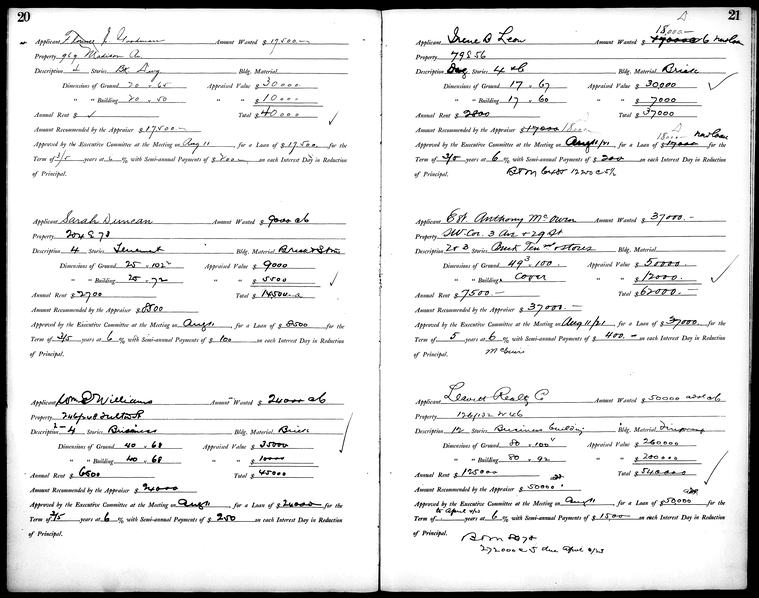 20
Applicant Thomas J. Goodman Amount Wanted $ 17500
Property 969 Madison Av
Description 4 Stories Bk Dwg Bldg. Material
Dimensions of Ground 20 × 65 Appraised Value $ 30000
" " Building 20 × 50 " " $ 10000
Annual Rent $ Total $ 40000
Amount Recommended by the Appraiser $ 17500
Approved by the Executive Committee at the Meeting on Aug 11, for a Loan of $ 17500 for the
Term of 3/5 years at 6 % with Semi-annual Payments of $ on each Interest Day in Reduction
of Principal.
Applicant Sarah Duncan Amount Wanted $ 9000 a 6
Property 204 E 78
Description 4 Stories Tenement Bldg. Material Brick & Stone
Dimensions of Ground 25 × 102² Appraised Value $ 9000
" " Building 25 × 72 " " $ 5500
Annual Rent $ 2700 Total $ 14500
Amount Recommended by the Appraiser $ 8500
Approved by the Executive Committee at the Meeting on Aug 11, for a Loan of $ 8500 for the
Term of 3/5 years at 6 % with Semi-annual Payments of $ 100 on each Interest Day in Reduction
of Principal.
Applicant Wm D Williams Amount Wanted $ 24000 a 6
Property 246/248 Fulton St
Description 2-4 Stories Business Bldg. Material Brick
Dimensions of Ground 40 × 68 Appraised Value $ 35000
" " Building 40 × 68 " " $ 10000
Annual Rent $ 6500 Total $ 45000
Amount Recommended by the Appraiser $ 24000
Approved by the Executive Committee at the Meeting on Aug 11, for a Loan of $ 24000 for the
Term of 3/5 years at 6 % with Semi-annual Payments of $ 250 on each Interest Day in Reduction
of Principal.
21
18000
Applicant Irene B Leon Amount Wanted $ 17000 a 6 new loan
Property 79 E 56
Description Dwg Stories 4 & b Bldg. Material Brick
Dimensions of Ground 17 × 67 Appraised Value $ 30000
" " Building 17 × 60 " " $ 7000
Annual Rent $ 2800 Total $ 37000
Amount Recommended by the Appraiser $ 17000 18000
18000 new loan
Approved by the Executive Committee at the Meeting on Aug 11/21, for a Loan of $ 17000 for the
Term of 3/5 years at 6 % with Semi-annual Payments of $ 200 on each Interest Day in Reduction
of Principal.
Applicant Est. Anthony McOwen Amount Wanted $ 37000.-
Property SW Cor. 3 Av & 29 St
Description 2 & 3 Stories Brick Ten & stores Bldg. Material
Dimensions of Ground 49³ × 100 Appraised Value $ 50000
" " Building Cover " " $ 12000
Annual Rent $ 7500 - Total $ 62000.-
Amount Recommended by the Appraiser $ 37000.-
Approved by the Executive Committee at the Meeting on Aug 11/21, for a Loan of $ 37000 for the
Term of 5 years at 6 % with Semi-annual Payments of $ 400.- on each Interest Day in Reduction
of Principal. McGuire
Applicant Leavitt Realty Co Amount Wanted $ 50000
Property 126/132 W 46
Description 12 Stories Business building Bldg. Material Fireproof
Dimensions of Ground 80 × 100⁴ Appraised Value $ 260000
" " Building 80 × 92 " " $
Annual Rent $ 125000 Total $ 540000
Amount Recommended by the Appraiser $ 50000
Approved by the Executive Committee at the Meeting on Aug 11, for a Loan of $ 50000 for the
Term of to April years at 6 % with Semi-annual Payments of $ 1500 on each Interest Day in Reduction
of Principal.
272000 a 5 due April